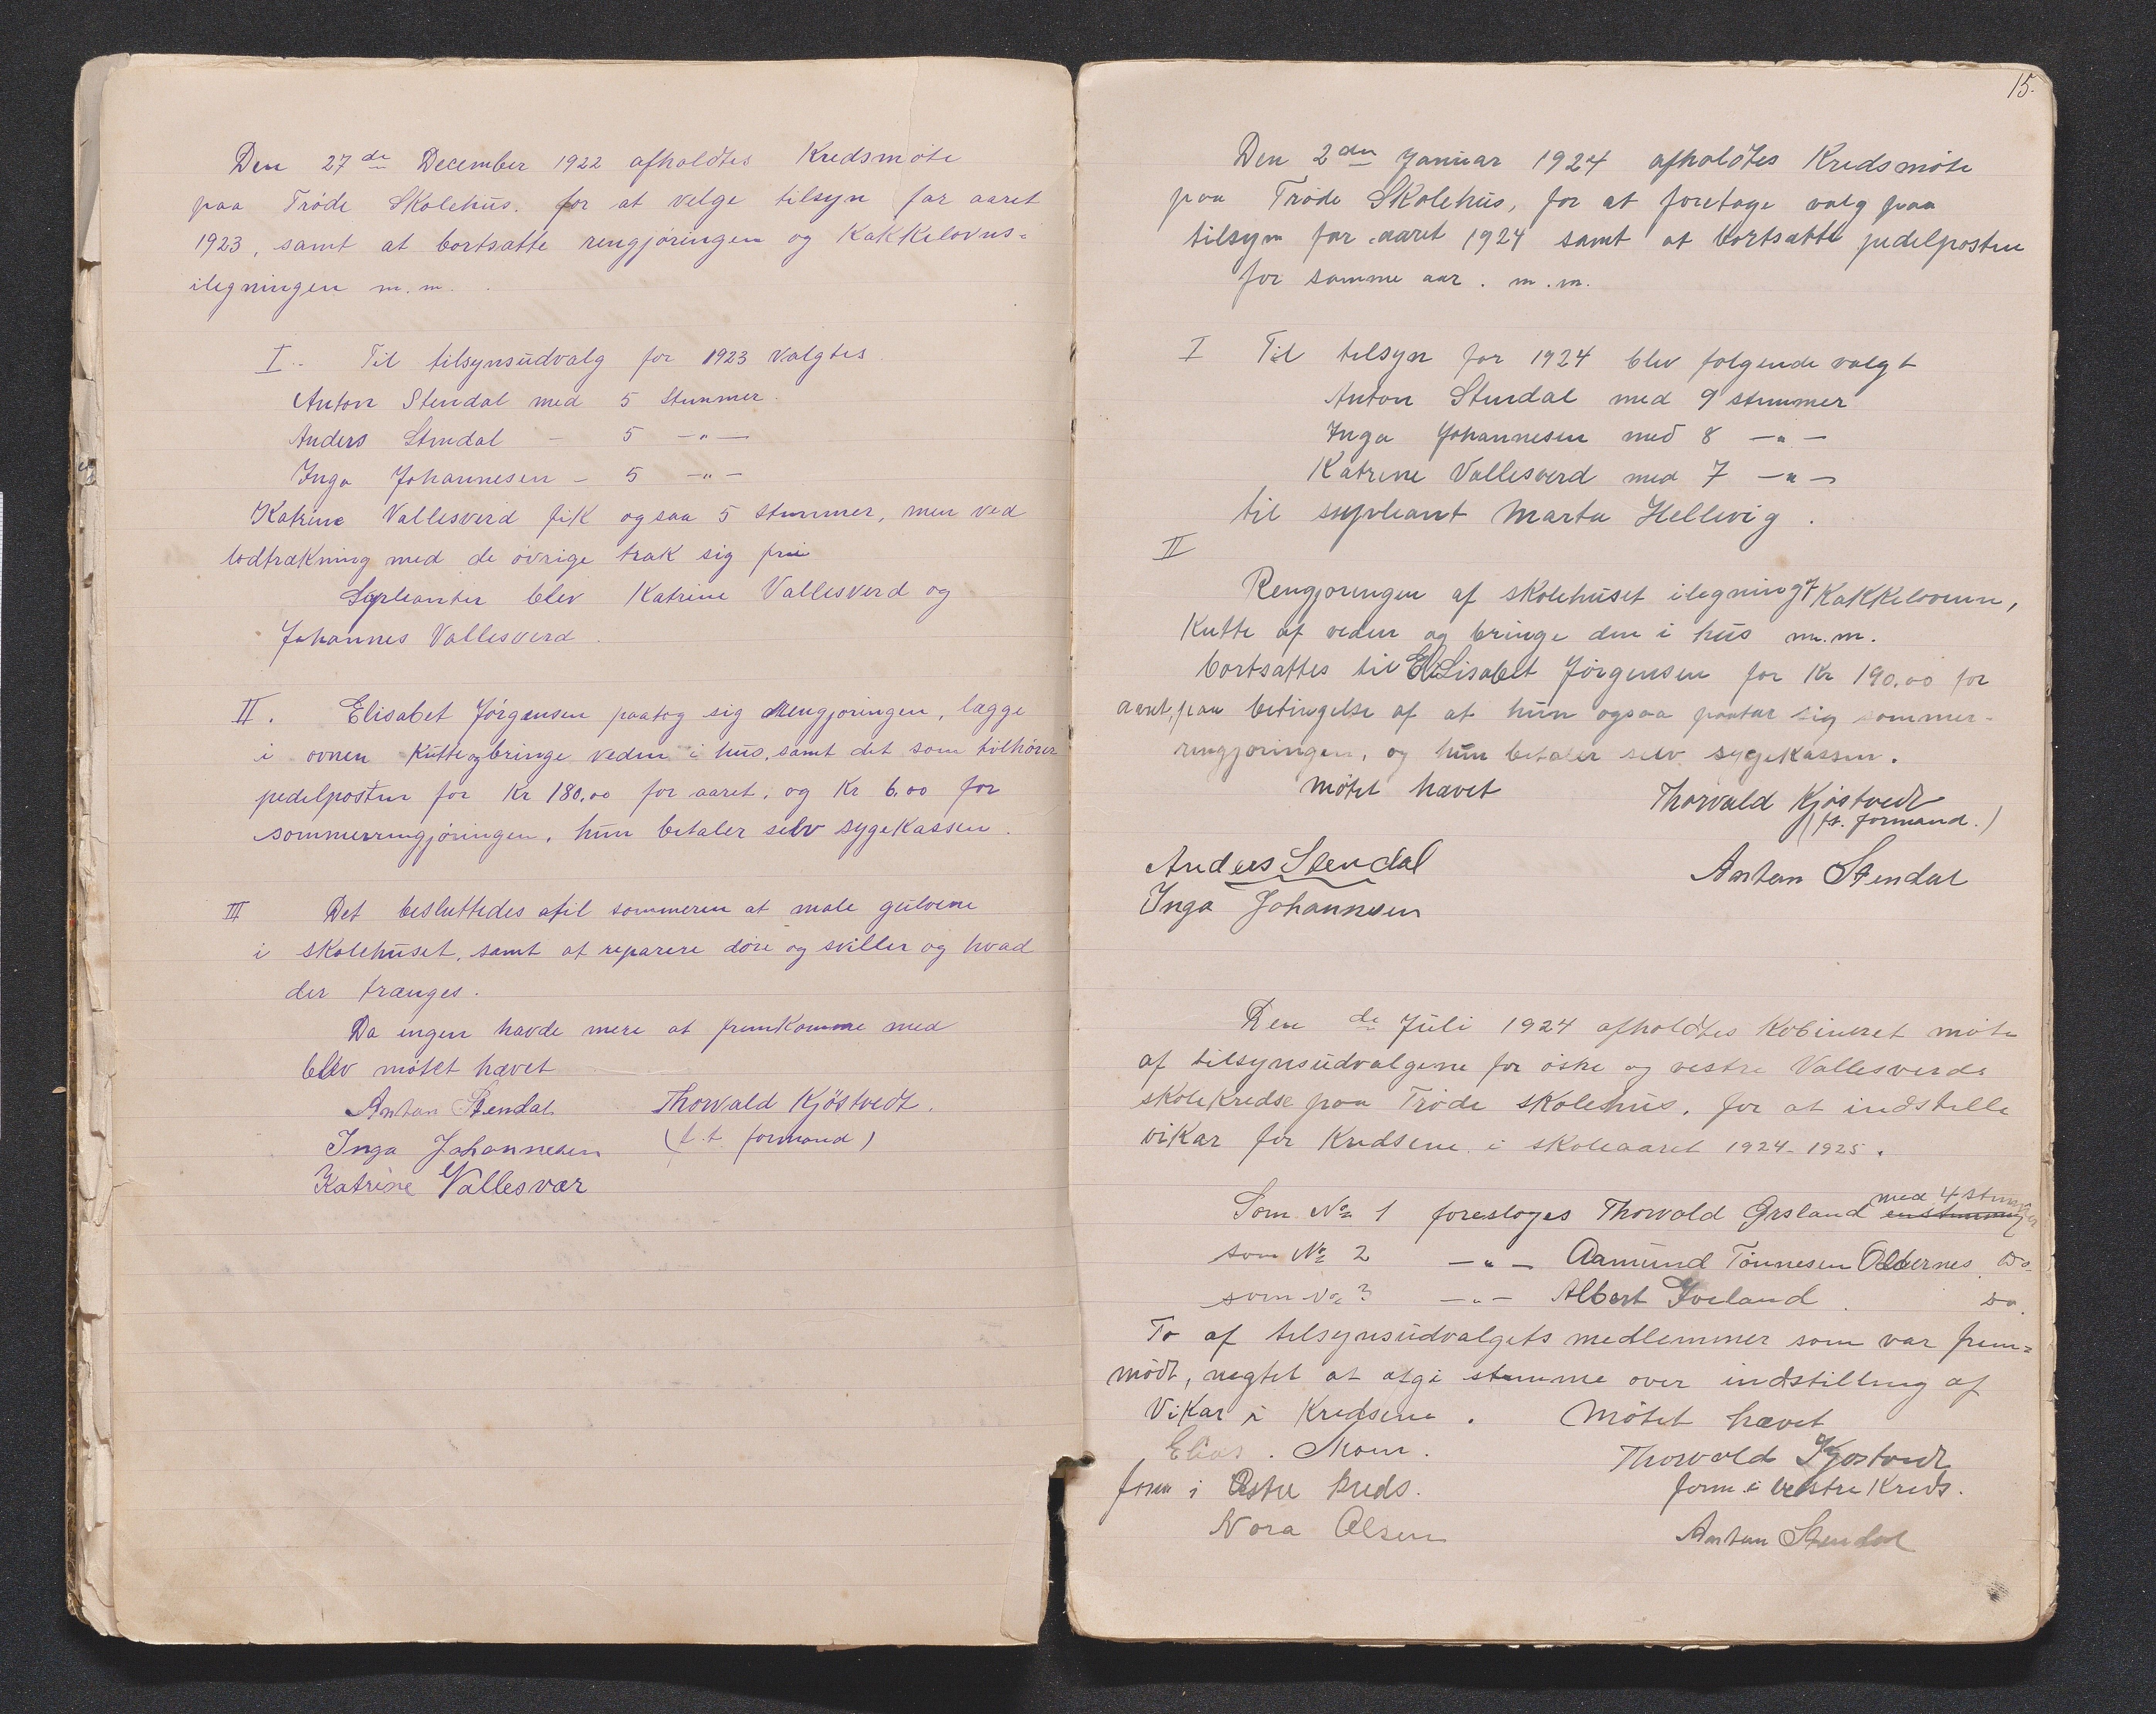 Den 27de December 1922 afholdtes Kredsmöte
paa Tröde Skolehus. for at velge tilsyn for aaret
1923, samt at bortsatte rengjöringen og Kakkelovns=
ilegningen m.m.
I. Til tilsynsudvalg for 1923 valgtes
Anton Stendal med 5 stemmer.
Anders Stendal - 5 -"-
Inga Johannesen - 5 -"-
Katrine Vallesverd fik ogsaa 5 stemmer, men ved
lodtrækning med de övrige trak sig fri
Supleanter blev Katrine Vallesverd og
Johannes Vallesverd.
II. Elisabet Jörgensen paatog sig Rengjöringen, lægge
i ovnen Kutte og bringe veden i hus, samt det som tilhörer
pedelposten for Kr 180,00 for aaret, og Kr 6.00 for
sommerrengjöringen, hun betaler selv sygekassen.
III Det besluttedes til sommeren at male gulvene
i skolehuset, samt at reparere döre og sviller og hvad
der trænges.
Da ingen havde mere at fremkomme med
blev mötet hævet
Anton Stendal Thorvald Kjöstvedt.
Inga Johannesen (f.t. formand)
Katrine Vallesvær
15.
Den 2den Januar 1924 afholdtes Kredsmöte
paa Tröde Skolehus, for at foretage valg paa
tilsyn for aaret 1924 samt at bortsatte pedelposten
for samme aar. m.m.
I Til tilsyn for 1924 blev folgende valgt
Anton Stendal med 9 stemmer
Inga Johannesen med 8 -"-
Katrine Vallesverd med 7 -"-
til supleant Marta Hellevig.
II
Rengjoringen af skolehuset ilegning i Kakkelovnen,
Kutte af veden og bringe den i hus m.m.
bortsattes til Elisabet Jörgensen for Kr 190.00 for
aaret, paa betingelse af at hun ogsaa paatar sig sommer-
rengjoringen, og hun betaler selv sygekassen.
mötet hævet Thorvald Kjöstvedt
(f.t. formand.)
Anders Stendal Anton Stendal
Inga Johannesen
Den de Juli 1924 afholdtes Kobineret möte
af tilsynsudvalgene for östre og vestre Vallesverds
skolekredse paa Tröde skolehus. for at indstille
vikar for Kredsene i skoleaaret 1924-1925.
med 4 stemmer
Som No 1 foresloges Thorvald Grsland enstemmig
som No 2 -"- Aamund Tönnesen Odernes Do.
som No 3 -"- Albert Iveland. Do.
To af tilsynsudvalgets medlemmer som var frem=
mödt, negtet at afgi stemme over indstilling af
Vikar i Kredsene. Mötet hævet
Elias. Moen. Thorvald Kjöstvedt
form i Östre kreds. form. i vestre Kreds.
Nora Olsen Anton Stendal